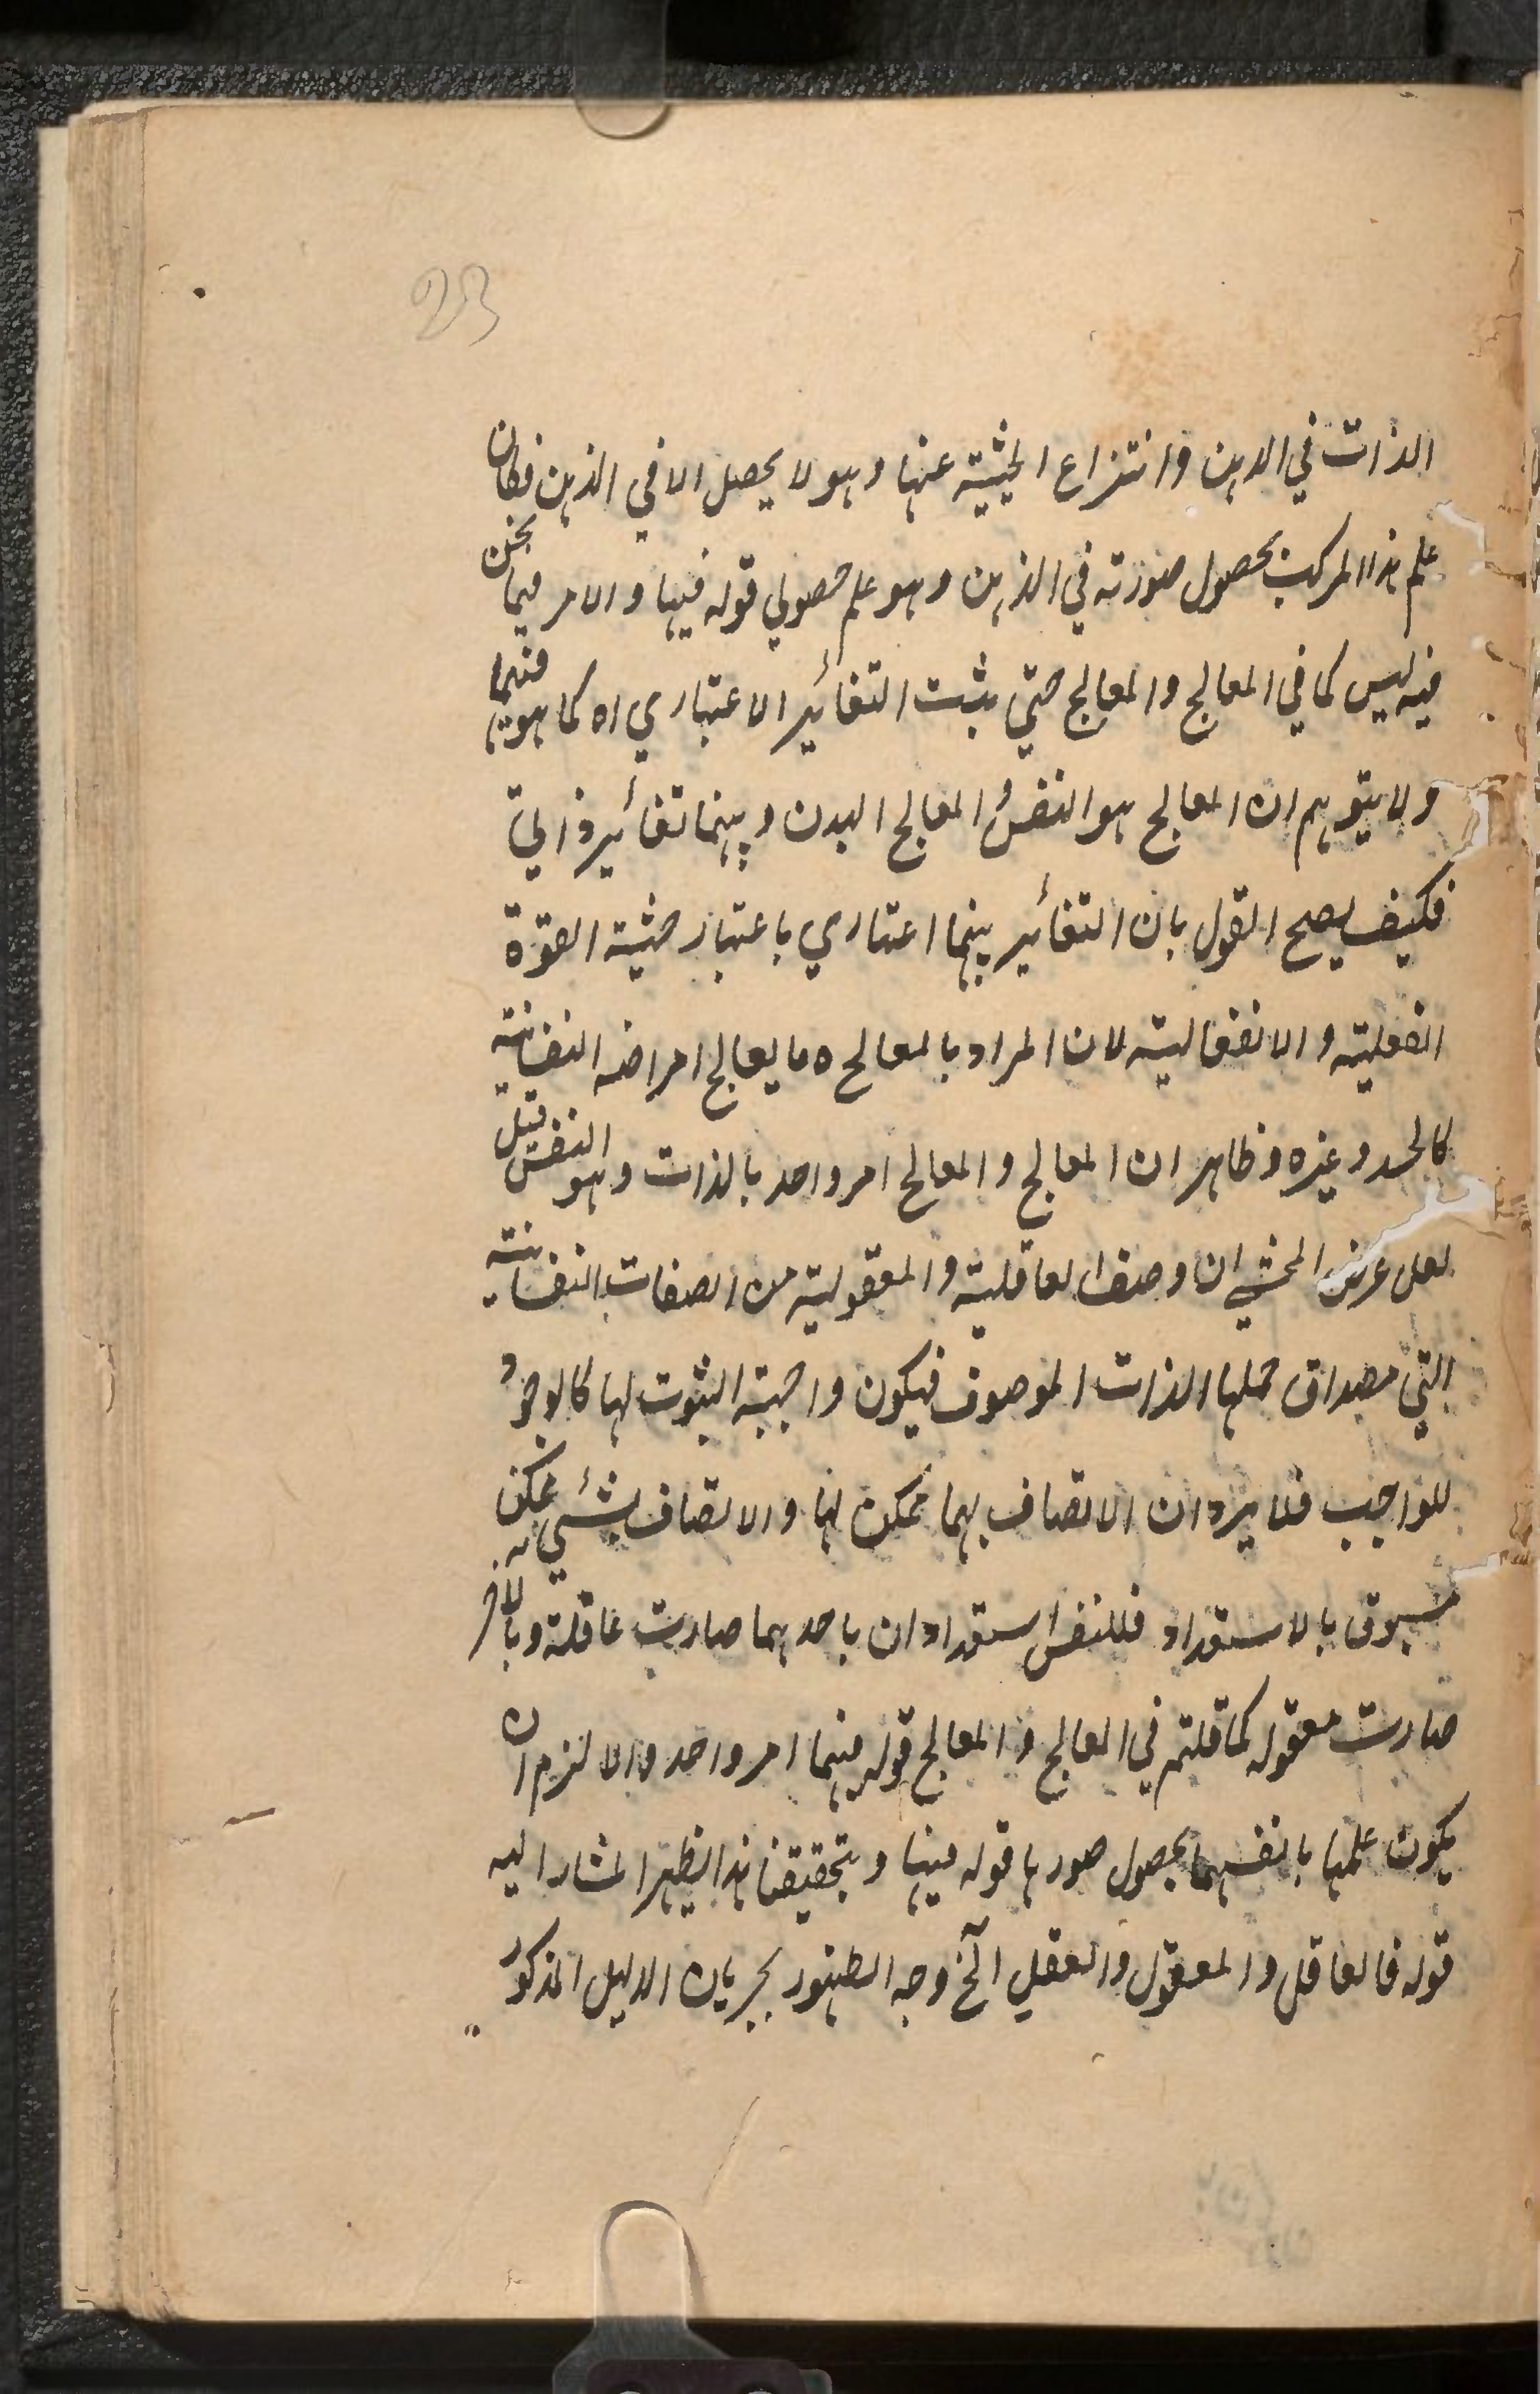 23
الذات في الذهن وانتزاع الحيثية عنها وهو لا يحصل الا في الذهن فكان
علم هذا المركب بحصول صورته في الذهن وهو علم حصولي قوله فيها والامر فيما نحن
فيه ليس كما في المعالج والمعالج حتى يثبت التغائير الاعتباري اه كما هو فيهما
ولا يتوهم ان المعالج هو النفس والمعالج البدن وبينهما تغائير ذاتي
فكيف يصح القول بان التغائير بينهما اعتباري باعتبار حيثية القوة
الفعلية والانفعالية لان المراد بالمعالج ما يعالج امراضه النفسانية
كالحسد وغيره وظاهر ان المعالج والمعالج امر واحد بالذات وهو النفس قيل
لعل غرض المحشي ان وصف العاقلية والمعقولية من الصفات النفسانية
التي مصداق حملها الذات الموصوف فيكون واجبة الثبوت لها كالوجود
للواجب فلا يرد ان الاتصاف بهما ممكن لها والاتصاف بشئي ممكن
مسبوق بالاستعداد فللنفس استعدادان باحدهما صارت عاقلة وبالاخر
صارت معقوله كما قلتم في المعالج والمعالج قوله فيهما امر واحد والا لزم ان
يكون علمها بانفسهما بحصول صورها قوله فيها وبتحقيقنا هذا يظهر المشار اليه
قوله فالعاقل والمعقول والعقل الخ وجه الظهور بجريان الدليل المذكور